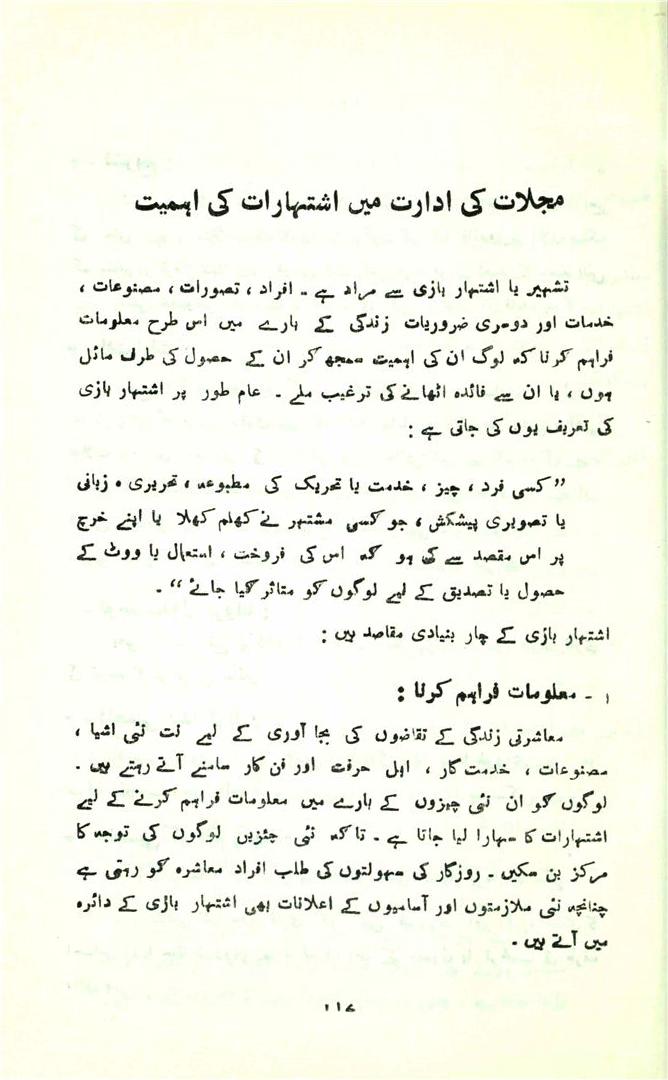 مجلات کی ادارت میں اشتہارات کی اہمیت
تشہیر یا اشتہار بازی سے مراد ہے ۔ افراد ، تصورات ، مصنوعات ،
خدمات اور دوسری ضروریات زندگی کے بارے میں اس طرح معلومات
فراہم کرنا کہ لوگ ان کی اہمیت سمجھ کر ان کے حصول کی طرف مائل
ہوں ، یا ان سے فائدہ اٹھانے کی ترغیب ملے ۔ عام طور پر اشتہار بازی
کی تعریف یوں کی جاتی ہے :
”کسی فرد ، چیز ، خدمت یا تحریک کی مطبوعہ ، تحریری ، زبانی
یا تصویری پیشکش ، جو کسی مشتہر نے کھلم کھلا یا اپنے خرچ
پر اس مقصد سے کی ہو کہ اس کی فروخت ، استعمال یا ووٹ کے
حصول یا تصدیق کے لیے لوگوں کو متاثر کیا جائے“ ۔
اشتہار بازی کے چار بنیادی مقاصد ہیں :
۱ ۔ معلومات فراہم کرنا :
معاشرتی زندگی کے تقاضوں کی بجا آوری کے لیے نت نئی اشیا ،
مصنوعات ، خدمت گار ، اہل حرفت اور فن کار سامنے آتے رہتے ہیں ۔
لوگوں کو ان نئی چیزوں کے بارے میں معلومات فراہم کرنے کے لیے
اشتہارات کا سہارا لیا جاتا ہے ۔ تاکہ نئی چئزیں لوگوں کی توجہ کا
مرکز بن سکیں ۔ روزگار کی سہولتوں کی طلب افراد معاشرہ کو رہتی ہے
چنانچہ نئی ملازمتوں اور آسامیوں کے اعلانات بھی اشتہار بازی کے دائرہ
میں آتے ہیں ۔
۱۱۷